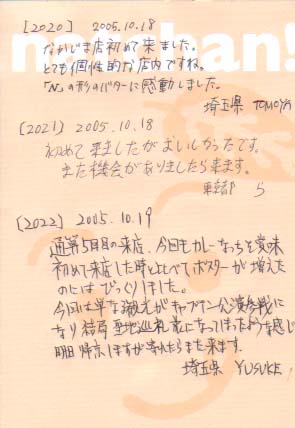 nakashan!
[2020] 2005.10.18
なかじま店初めて来ました。
とても個性的な店内ですね。
「N」の形のバターに感動しました。
埼玉県 TOMOYA
[2021] 2005.10.18
初めて来ましたがおいしかったです。
また機会がありましたら来ます。
東京都 ら
[2022] 2005.10.19
通算5回目の来店、今回もカレーなっちを賞味
初めて来店した時とくらべてポスターが増えた
のにはびっくりしました。
今回は単なる観光がキャプテン公演参戦に
なり結局聖地巡礼前になってしまったような感じ
明日帰京しますが寄れたらまた来ます。
埼玉県 YUSUKE